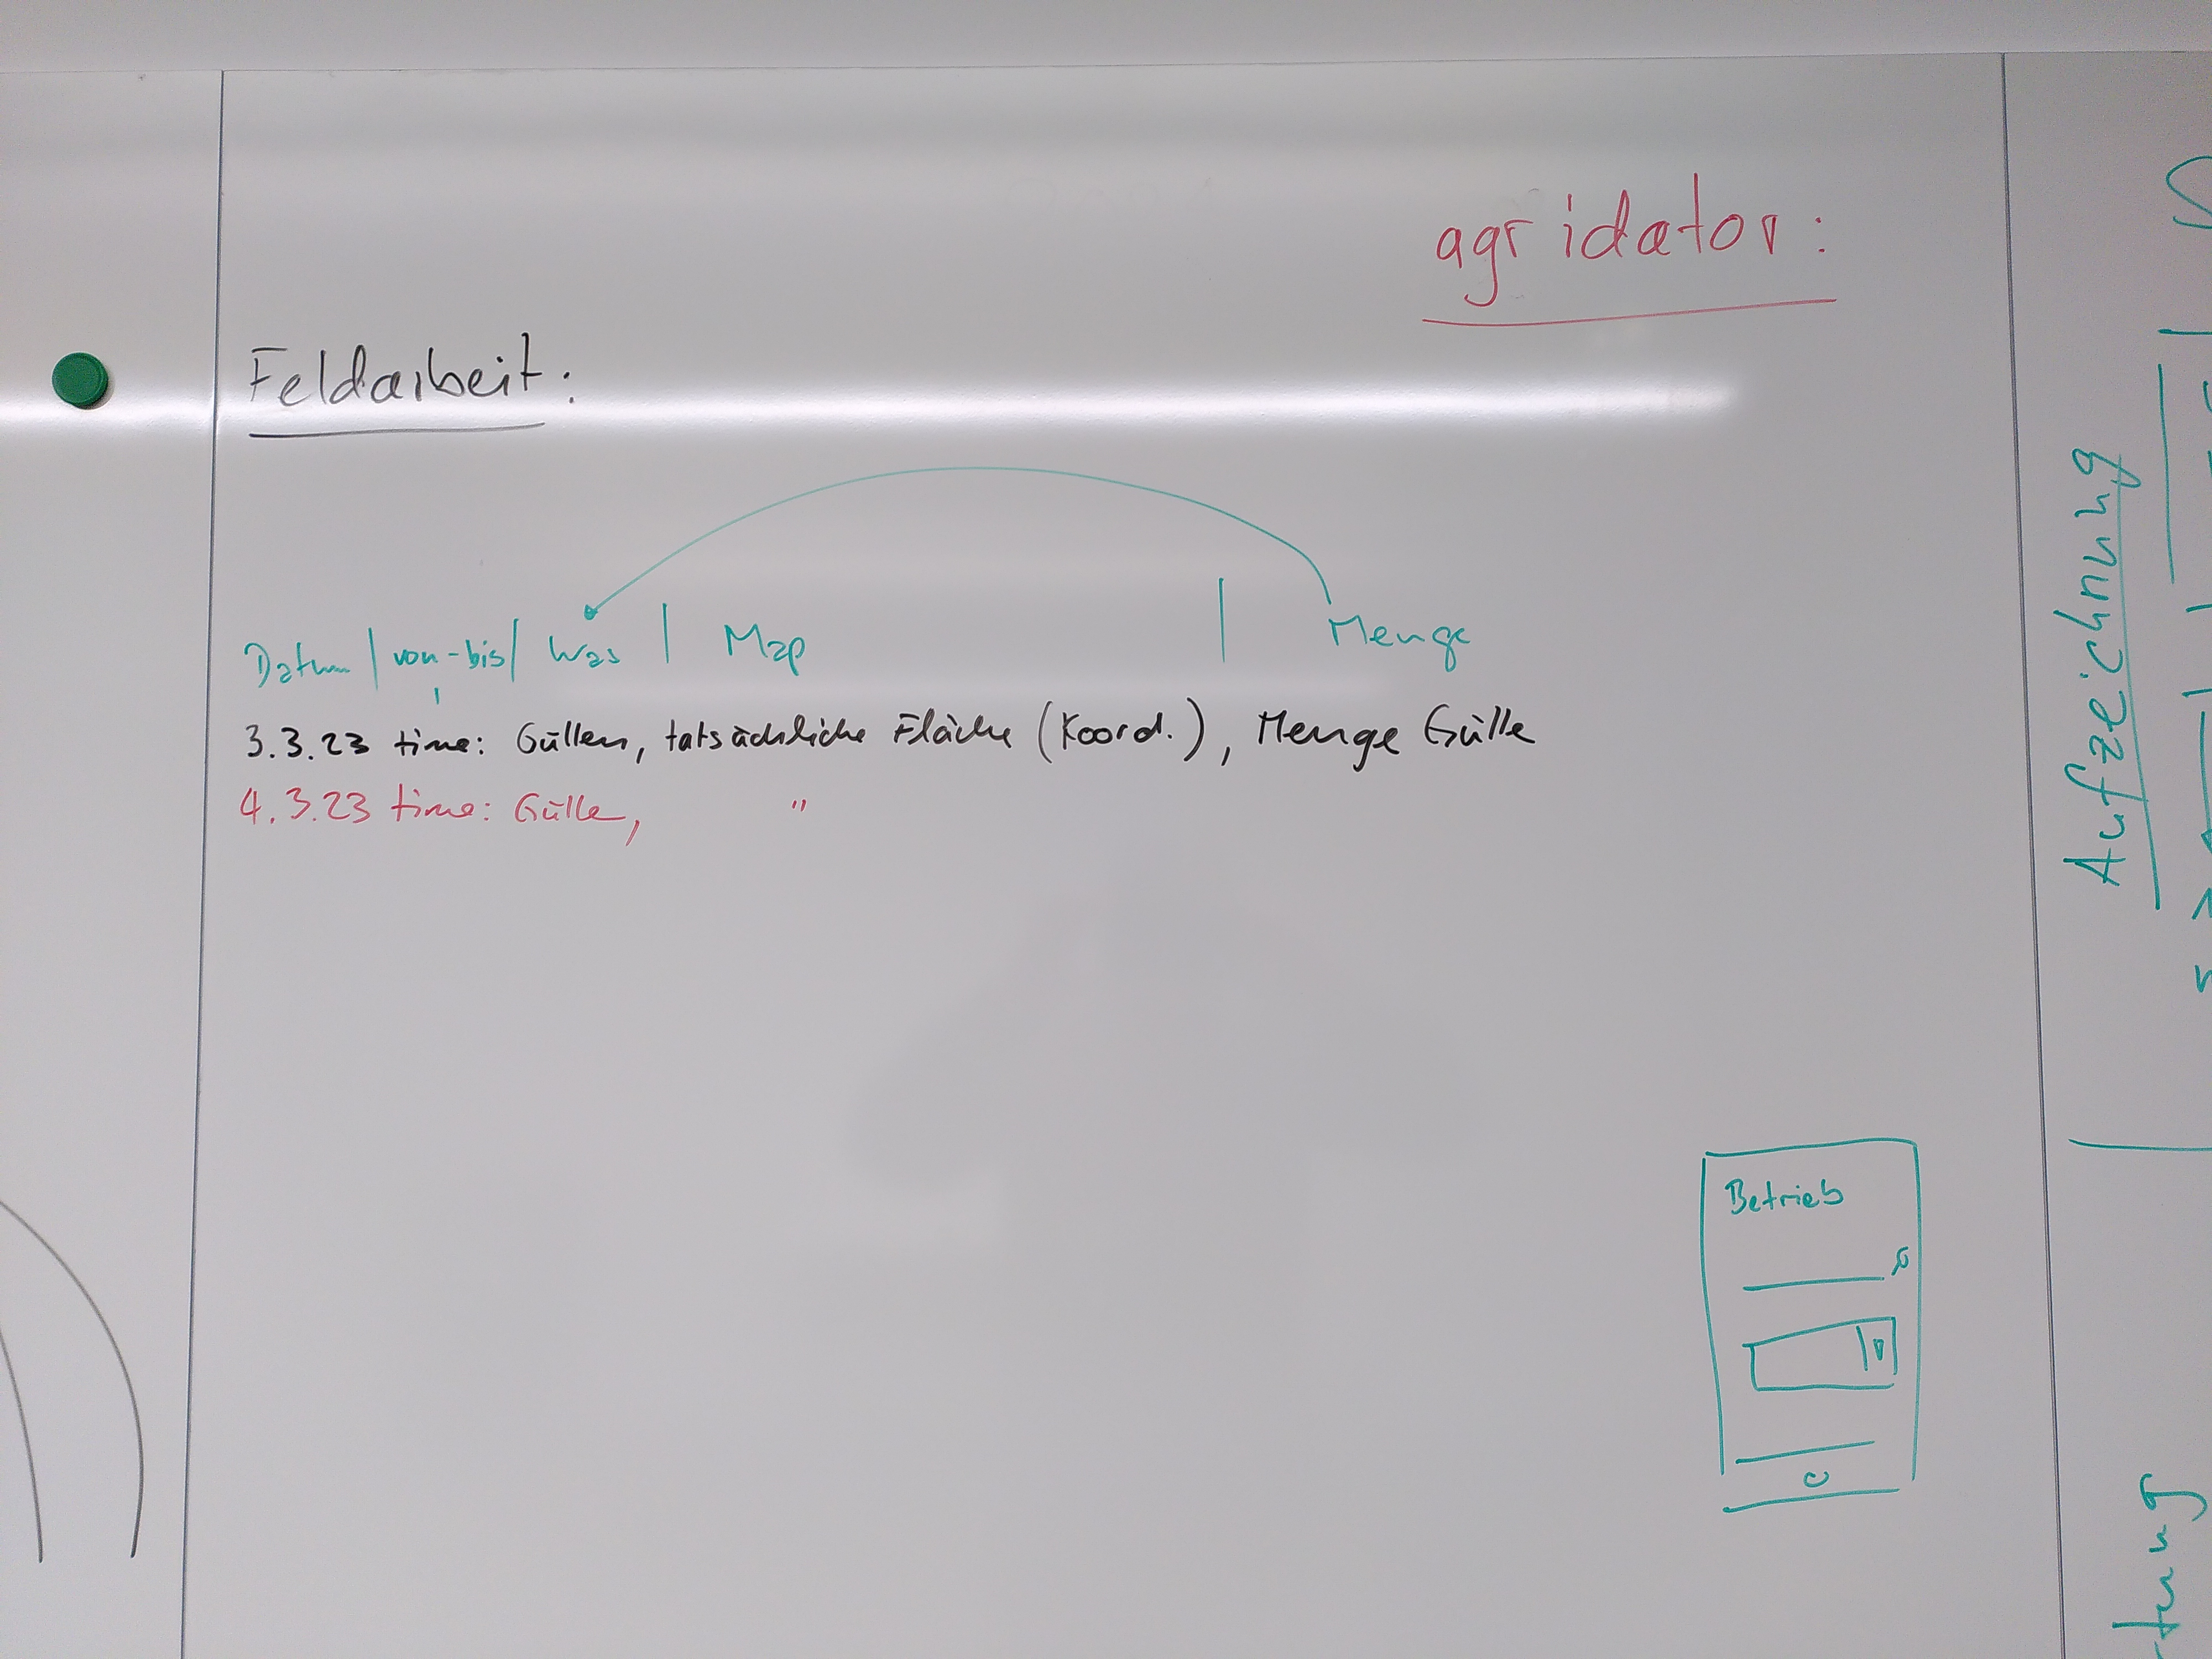 agridator:
Feldarbeit:
Datum | von-bis | Was | Map | Menge
3.3.23 time: Güllen, tatsächliche Fläche (Koord.), Menge Gülle
4.3.23 time: Gülle, "
Betrieb
Aufzeichnung